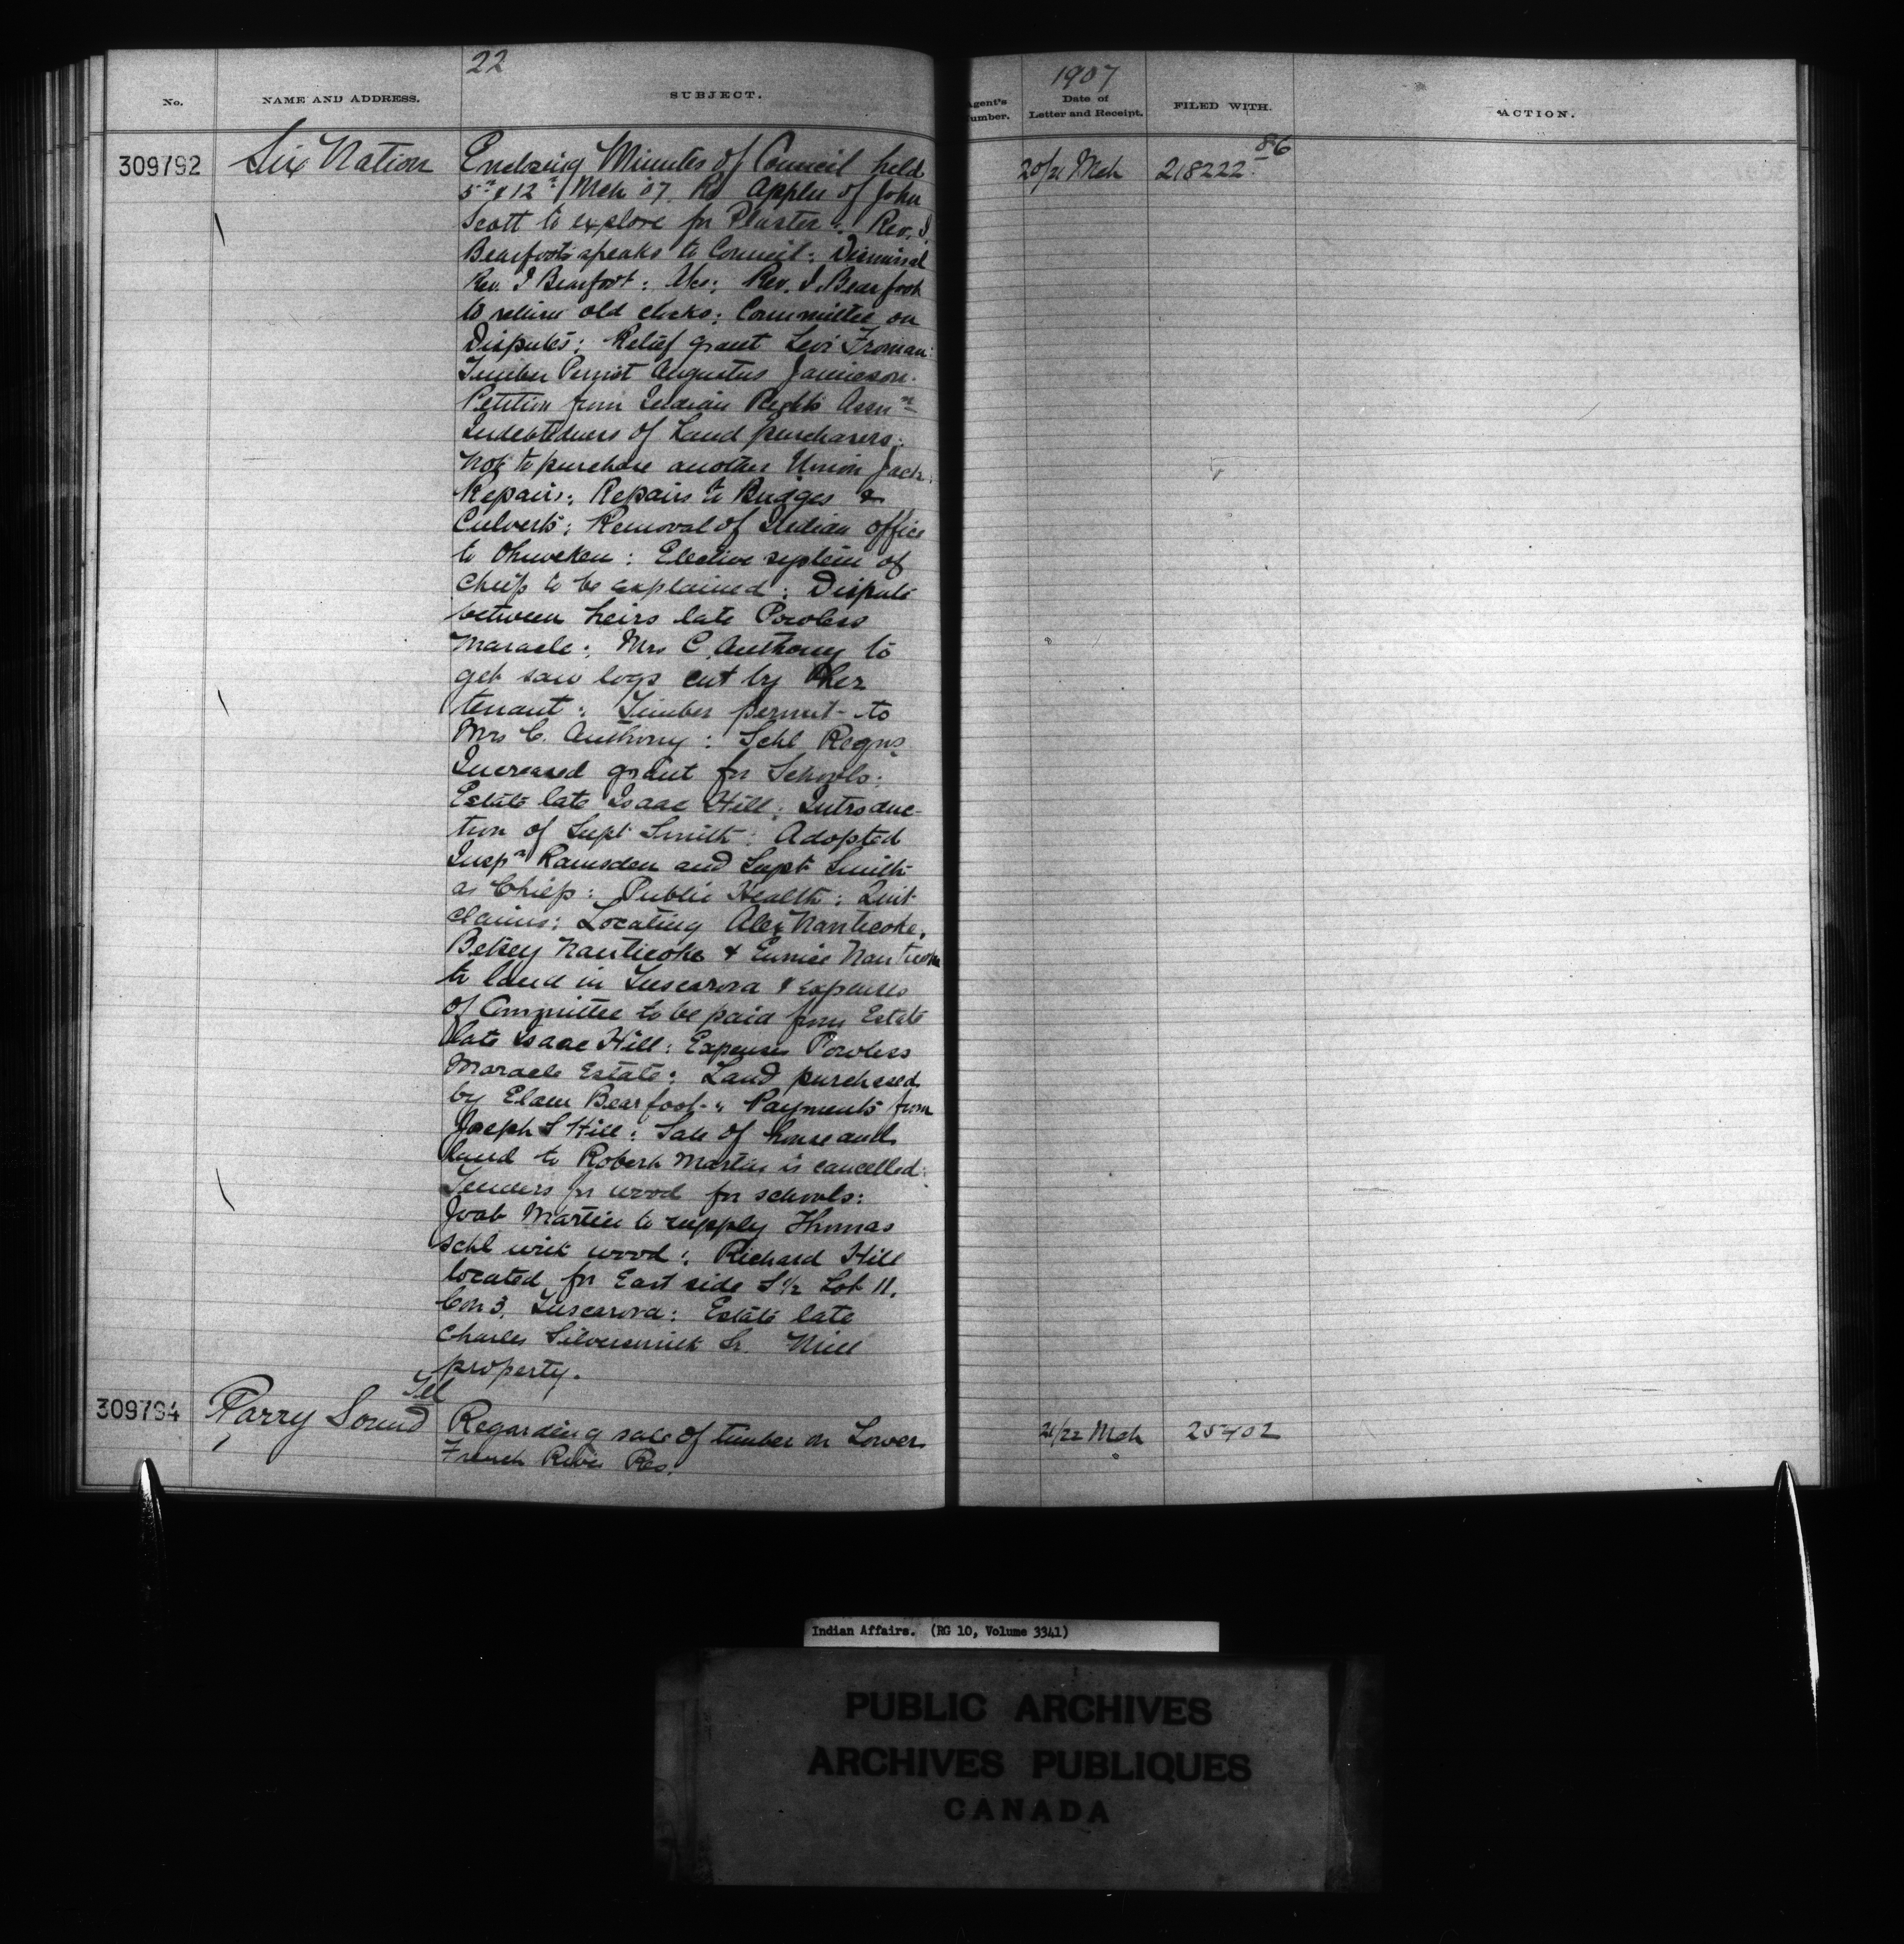 22
1907
No.
NAME AND ADDRESS.
SUBJECT.
Agent's Number.
Date of Letter and Receipt.
FILED WITH.
ACTION.
309792
Six Nation
20/21 Mch
218222 86
Enclosing Minutes of Council held
5th & 12th Mch 07. Re Appln of John
Scott to explore for Plaster: Rev. I.
Bearfoot speaks to Council: Dismissal
Rev. I Bearfoot: Rev. I. Bearfoot
to return old clocks: Committee on
Disputes: Relief grant Levi Froman:
Timber Permit Augustus Jamieson:
Petition from Indian Rights Assn
Indebtedness of Land purchasers:
Not to purchase another Union Jack:
Repairs: Repairs to Bridges &
Culverts: Removal of Indian Office
to Ohsweken: Elective system of
Chiefs to be explained: Dispute
between heirs late Powless
Maracle: Mrs C. Anthony to
get saw logs cut by her
tenant: Timber permit to
Mrs C. Anthony: Schl Regns
Increased grant for Schools:
Estate late Isaac Hill: Introduc-
tion of Supt Smith: Adopted
Inspr Ramsden and Supt Smith
as Chiefs: Public Health: Quit
claims: Locating Alex Nanticoke,
Betsey Nanticoke & Eunice Nanticoke
to land in Tuscarora & expenses
of Committee to be paid from Estate
late Isaac Hill: Expenses Powless
Maracle Estate: Land purchased
by Elam Bearfoot: Payments from
Joseph S Hill: Sale of house and
land to Robert Martin is cancelled:
Tenders for wood for schools:
Joab Martin to supply Thomas
Schl with wood: Richard Hill
located for East side S 1/2 Lot 11.
Con 3. Tuscarora: Estate late
Charles Silversmith Sr. Mill
property.
309794
Tel
Parry Sound
Regarding sale of timber on Lower
French River Res.
21/22 Mch
25402
Indian Affairs. (RG 10, Volume 3341)
PUBLIC ARCHIVES
ARCHIVES PUBLIQUES
CANADA